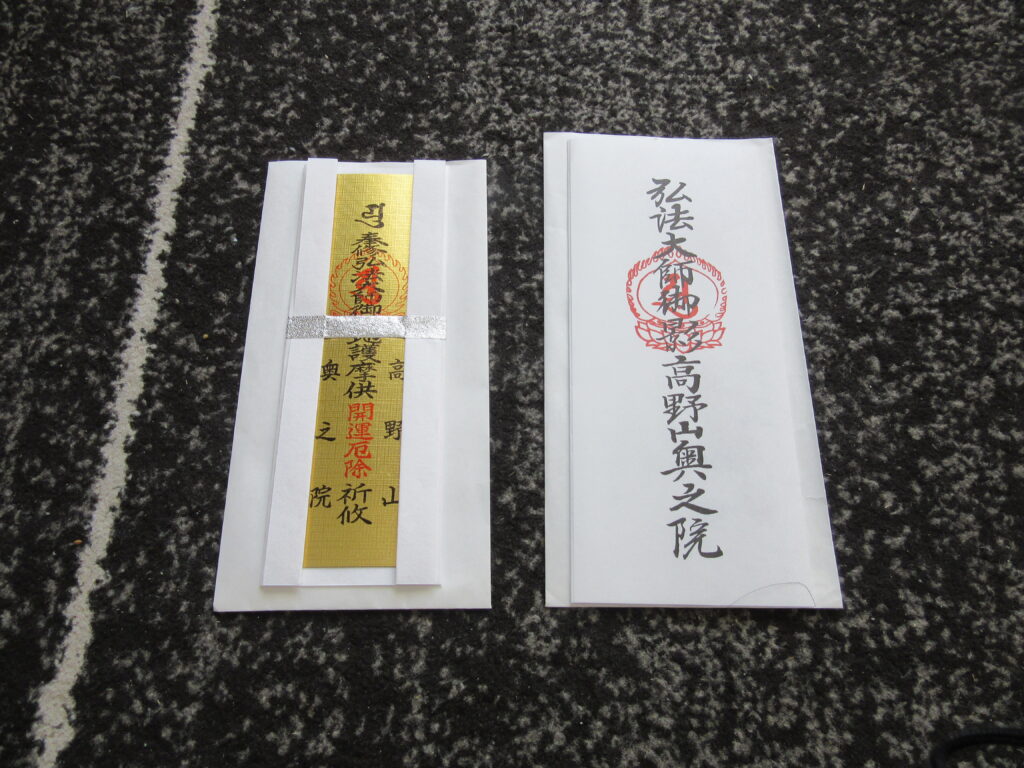 奉修弘法大師御
地護摩供
開運厄除
祈攸
高野山
奥之院
弘法大師御影高野山奥之院